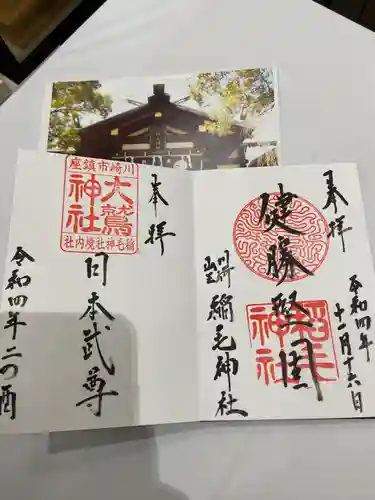 奉拝
健勝堅固
稲毛神社
川崎
山王
令和四年
十一月十六日
稲毛神社
奉拝
川崎市鎮座
大鷲神社
稲毛神社境内社
日本武尊
令和四年二の酉